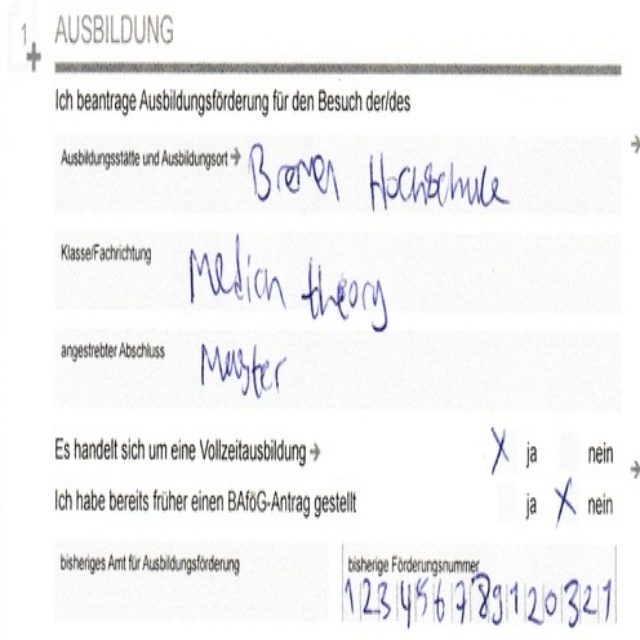 1 AUSBILDUNG
Ich beantrage Ausbildungsförderung für den Besuch der/des
Ausbildungsstätte und Ausbildungsort → Bremen Hochschule
Klasse/Fachrichtung Medien theory
angestrebter Abschluss Master
Es handelt sich um eine Vollzeitausbildung → X ja nein
Ich habe bereits früher einen BAföG-Antrag gestellt ja X nein
bisheriges Amt für Ausbildungsförderung bisherige Förderungsnummer
123456789120321